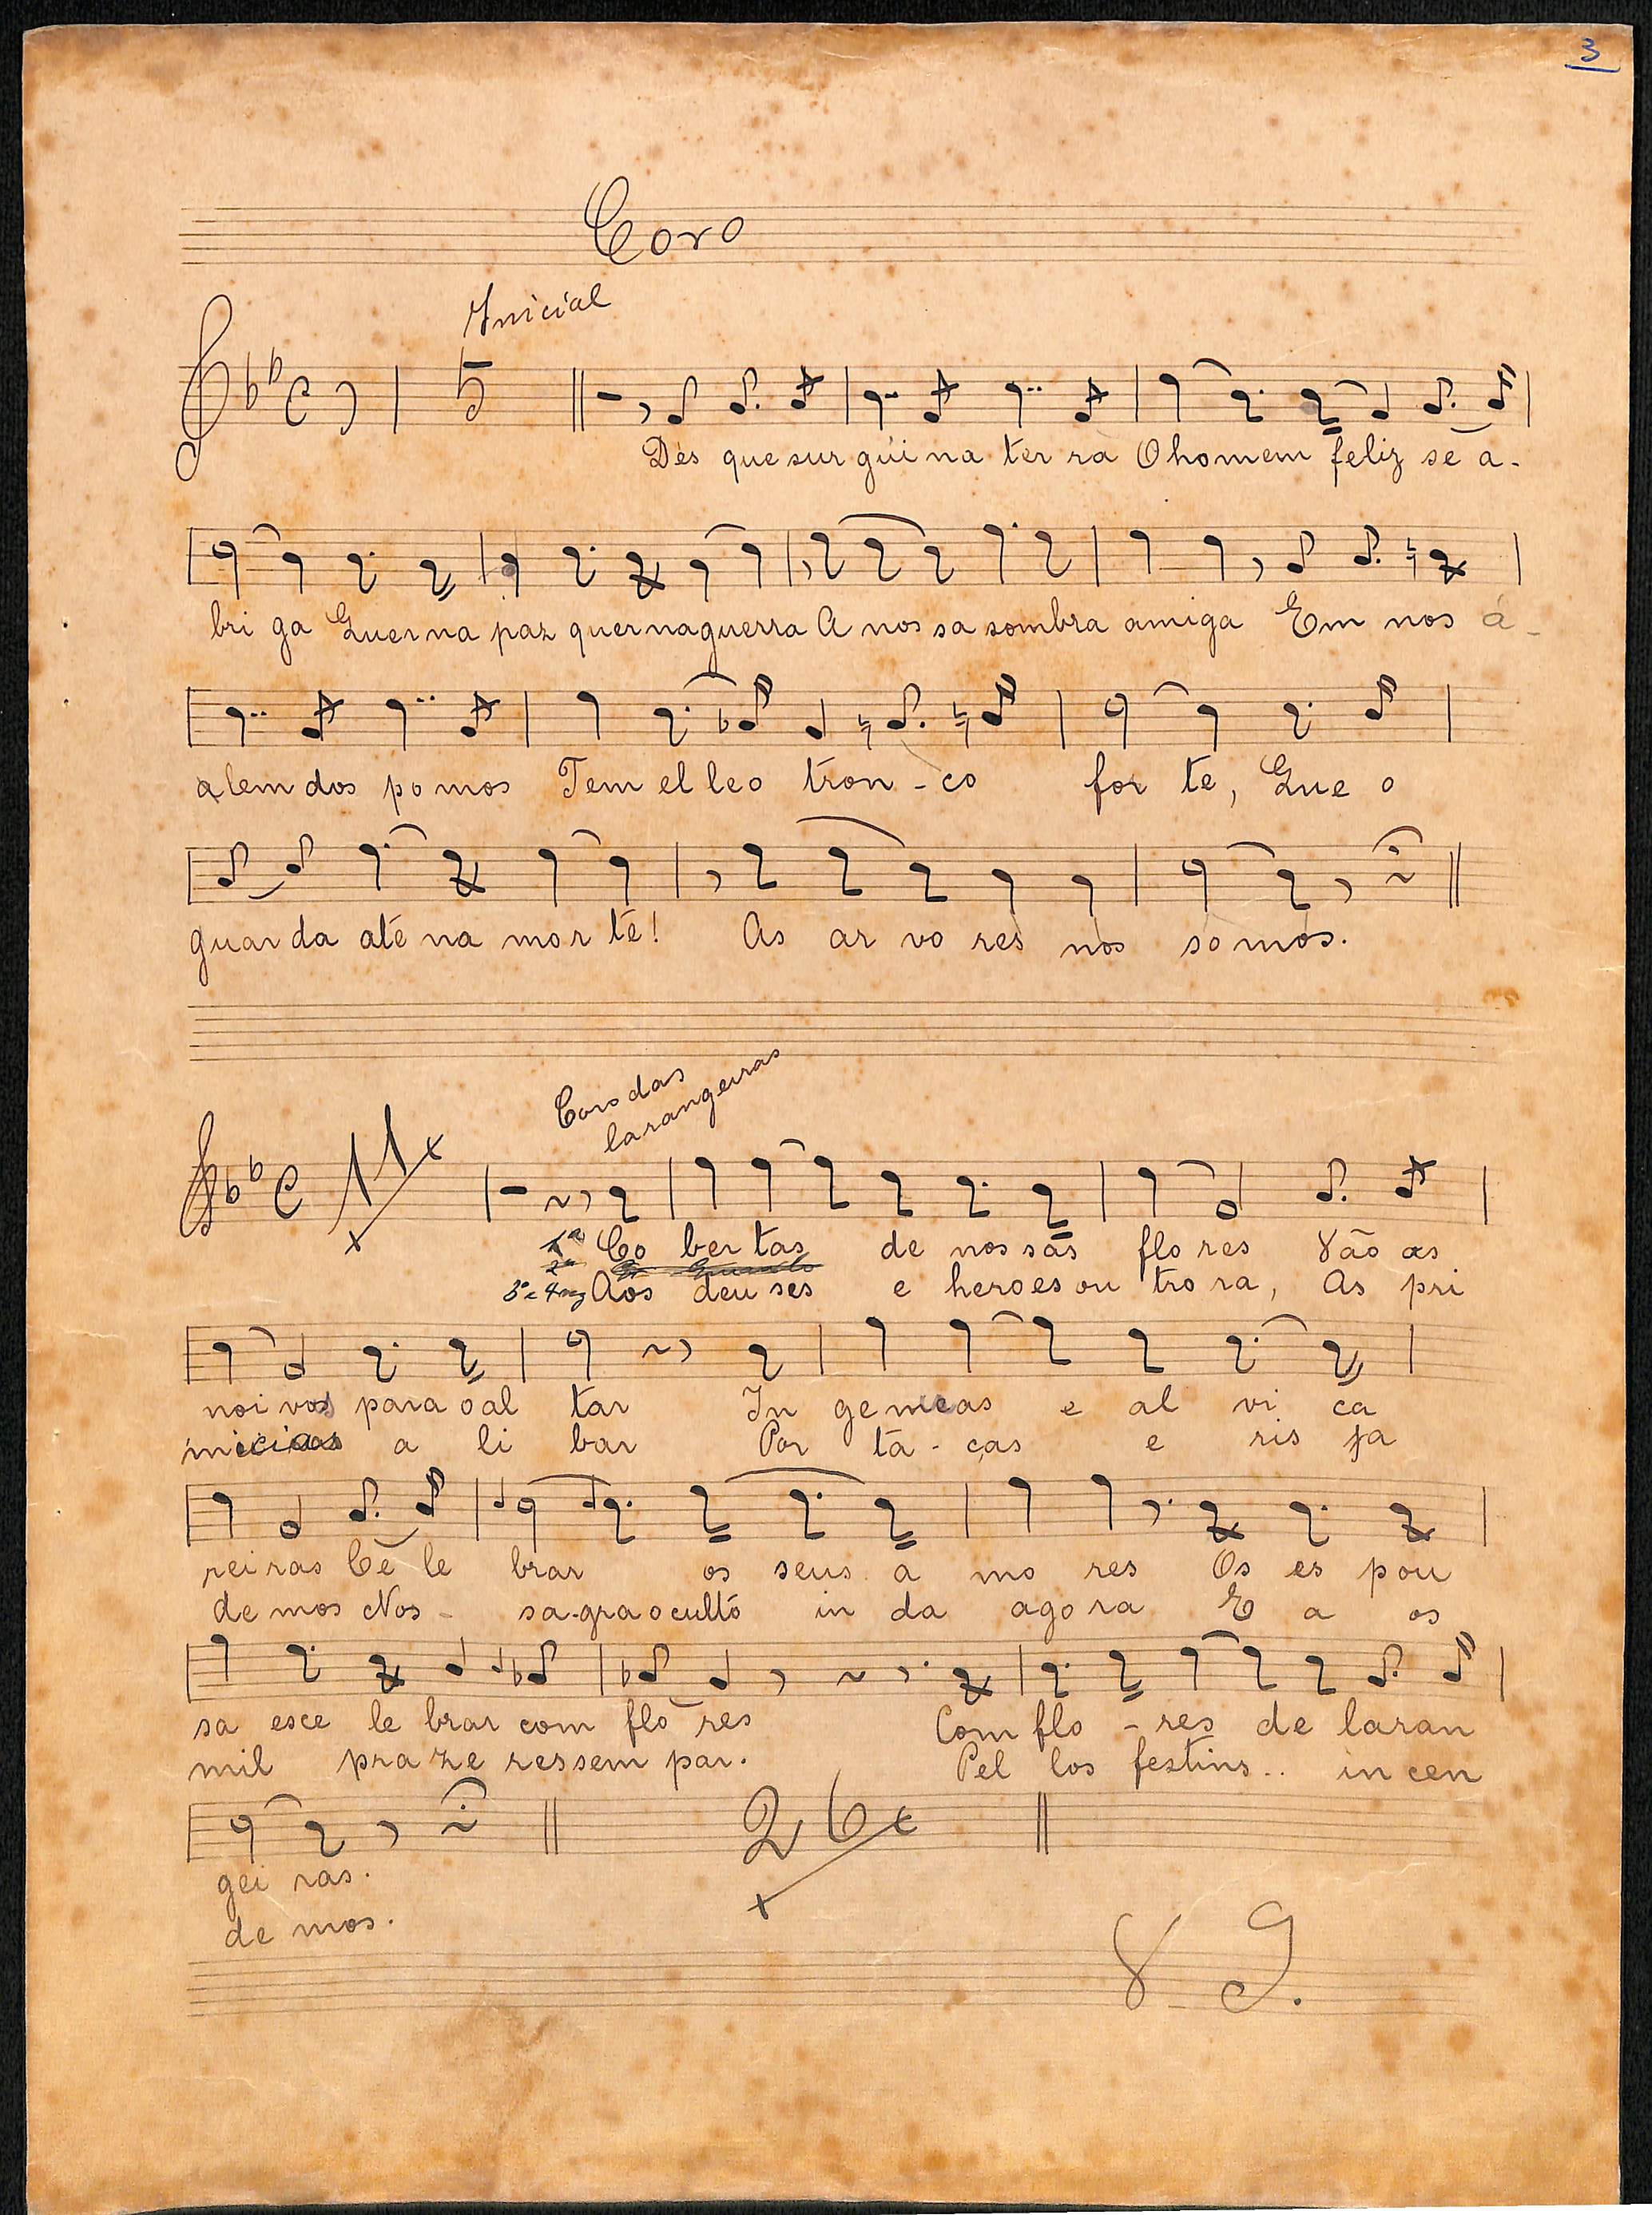 3
Coro
Inicial
5
Dés que surgúi na ter ra O homem feliz se a-
bri ga Quer na paz quer na guerra A nos sa sombra amiga Em nos á-
alem dos po mos Tem el le o tron - co for te, Que o
guar da até na mor te! As ar vo res nos somos.
Coro das
larangeiras
11
1ª Co ber tas de nos sas flo res Vão as
2ª
3ª e 4ª Aos deu ses e heroes ou tro ra, As pri
noi vos para o al tar In ge neas e al vi ça
micias a li bar Por ta - ças e ris ja
rei ras Ce le brar os seus a mo res Os es pou
de mos Nos - sa-gra o culto in da ago ra E a os
sa es ce le brar com flo res Com flo - res de laran
mil pra ze res sem par. Pel los festins.. in cen
gei ras.
de mos.
26
V G.